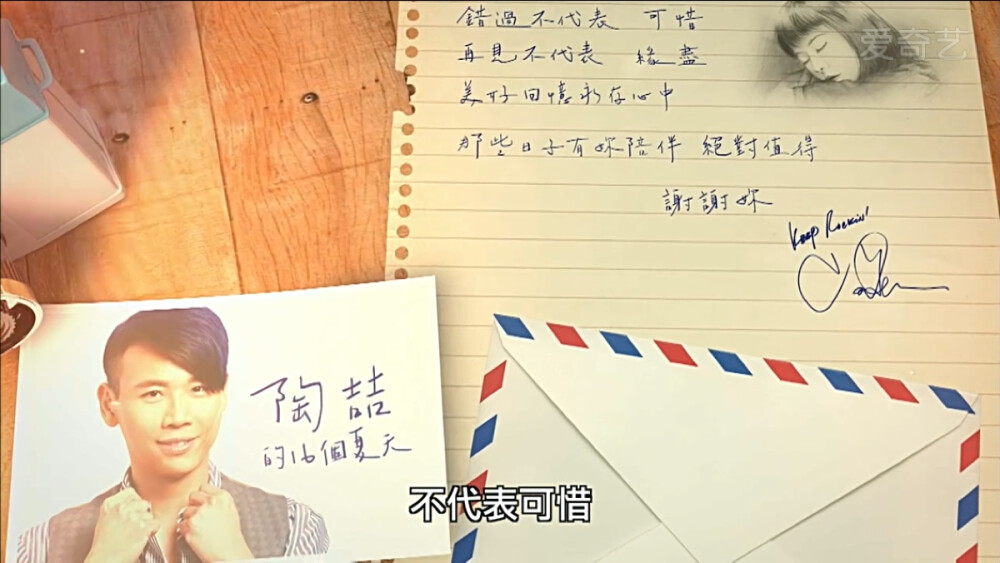 錯過不代表 可惜
再見不代表 緣盡
美好回憶永存心中
那些日子有妳陪伴 絕對值得
謝謝妳
Keep Rockin'
爱奇艺
陶喆
的16個夏天
不代表可惜